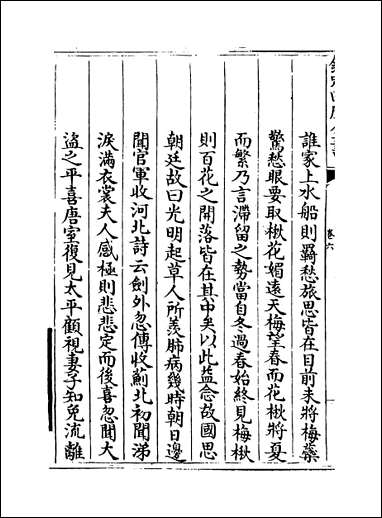 誰家上水船則羇愁旅思皆在目前未將梅蘂
驚愁眼要取楸花媚遠天梅望春而花楸將夏
而繁乃言滯留之勢當自冬過春始終見梅楸
則百花之開落皆在其中矣以此益念故國思
朝廷故曰光明起草人所羨肺病幾時朝日邊
聞官軍收河北詩云劍外忽傳收薊北初聞涕
淚滿衣裳夫人感極則悲悲定而後喜忽聞大
盜之平喜唐室復見太平顧視妻子知免流離
卷六